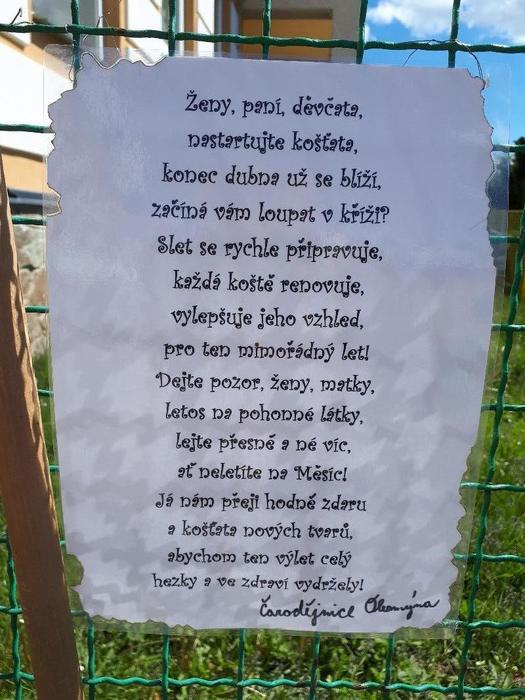 Ženy, paní, děvčata,
nastartujte košťata,
konec dubna už se blíží,
začíná vám loupat v kříži?
Slet se rychle připravuje,
každá koště renovuje,
vylepšuje jeho vzhled,
pro ten mimořádný let!
Dejte pozor, ženy, matky,
letos na pohonné látky,
lejte přesně a né víc,
ať neletíte na Měsíc!
Já nám přeji hodně zdaru
a košťata nových tvarů,
abychom ten výlet celý
hezky a ve zdraví vydržely!
Čarodějnice